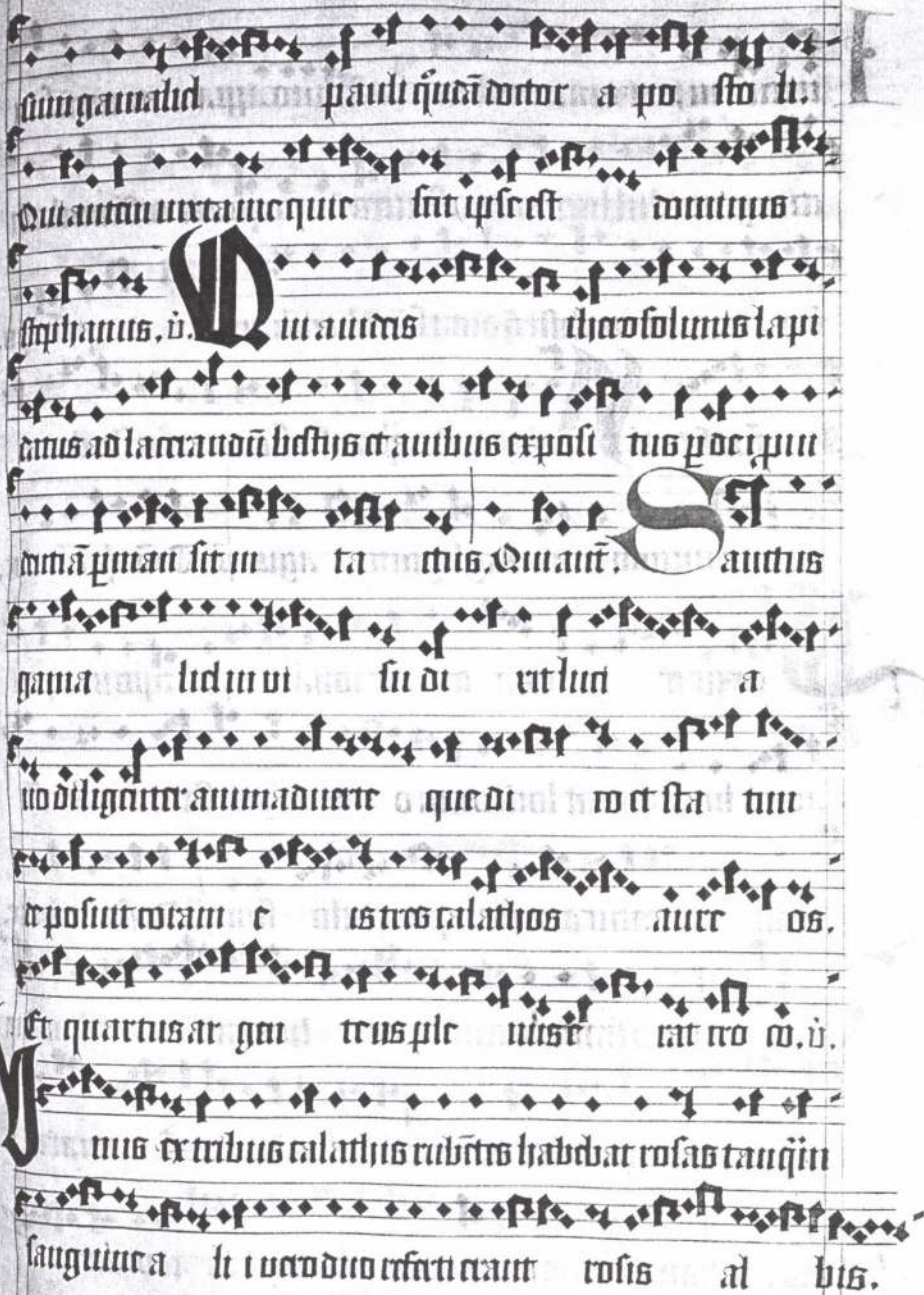 sum gamaliel pauli q̊ndā doctor a po sto li.
Qui autem iuxta me quie scit ipse est dominus
stephanus. v̇. Qui a iudeis iherosolimis lapi
datus ad lacerandū bestijs et auibus exposi tus p̄ dei prui
dentiā p̄mansit in ta ctus Qui aut̄. Sanctus
gama liel in ui su di xit luci a
no diligenter animaduerte que di co et sta tim
et posuit coram e is tres calathos aure os.
Et quartus ar gen teus ple nus e rat cro co. v̇.
Unus ex tribus calathis rubētes habebat rosas tanq̈m
sanguinea li i uero duo referti erant rosis al bis.